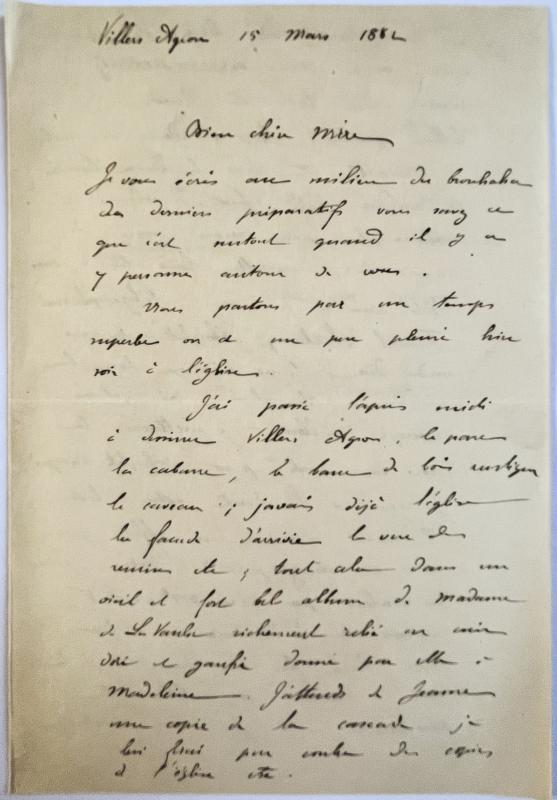 Villers Agron 15 Mars 1882
Bien chère Mère
Je vous écris au milieu du brouhaha
des derniers préparatifs vous savez ce
que c'est surtout quand il y a
7 personnes autour de vous.
Nous partons par un temps
superbe on a un peu pleuré hier
soir à l'église.
J'ai passé l'après midi
à dessiner Villers Agron, le parc
la cabane, le banc de bois rustique
le caveau ; j'avais déjà l'église
la façade d'arrivée la vue des
ruines etc ; tout cela dans un
vieil et fort bel album de Madame
de La Vaulx richement relié en cuir
doré et gaufré donné par elle à
Madeleine. J'attends de Jeanne
une copie de la cascade je
lui ferai par contre des copies
de l'église etc.